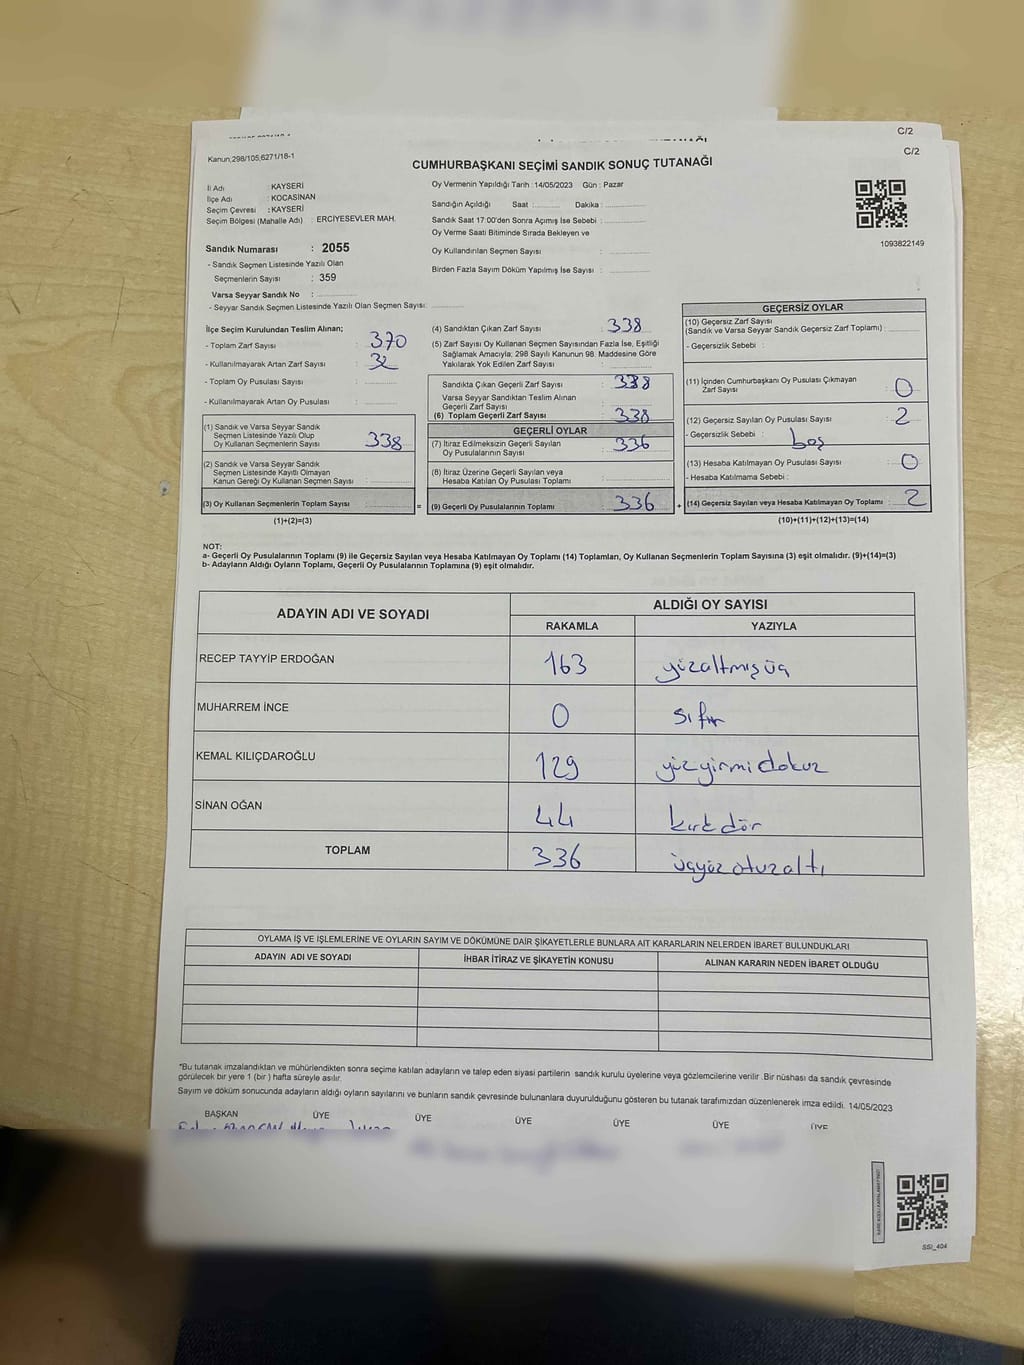 C/2
Kanun,298/105,6271/18-1
C/2
CUMHURBAŞKANI SEÇİMİ SANDIK SONUÇ TUTANAĞI
İl Adı : KAYSERİ
İlçe Adı : KOCASİNAN
Seçim Çevresi : KAYSERİ
Seçim Bölgesi (Mahalle Adı) : ERCİYESEVLER MAH.
Sandık Numarası : 2055
- Sandık Seçmen Listesinde Yazılı Olan
Seçmenlerin Sayısı : 359
Varsa Seyyar Sandık No :
- Seyyar Sandık Seçmen Listesinde Yazılı Olan Seçmen Sayısı:
Oy Vermenin Yapıldığı Tarih : 14/05/2023 Gün : Pazar
Sandığın Açıldığı Saat : Dakika :
Sandık Saat 17:00'den Sonra Açımış İse Sebebi :
Oy Verme Saati Bitiminde Sırada Bekleyen ve
Oy Kullandırılan Seçmen Sayısı :
Birden Fazla Sayım Döküm Yapılmış İse Sayısı :
1093822149
İlçe Seçim Kurulundan Teslim Alınan;
- Toplam Zarf Sayısı : 370
- Kullanılmayarak Artan Zarf Sayısı : 32
- Toplam Oy Pusulası Sayısı :
- Kullanılmayarak Artan Oy Pusulası :
(1) Sandık ve Varsa Seyyar Sandık
Seçmen Listesinde Yazılı Olup
Oy Kullanan Seçmenlerin Sayısı : 338
(2) Sandık ve Varsa Seyyar Sandık
Seçmen Listesinde Kayıtlı Olmayan
Kanun Gereği Oy Kullanan Seçmen Sayısı :
(3) Oy Kullanan Seçmenlerin Toplam Sayısı =
(1)+(2)=(3)
(4) Sandıktan Çıkan Zarf Sayısı : 338
(5) Zarf Sayısı Oy Kullanan Seçmen Sayısından Fazla İse, Eşitliği
Sağlamak Amacıyla; 298 Sayılı Kanunun 98. Maddesine Göre
Yakılarak Yok Edilen Zarf Sayısı :
Sandıkta Çıkan Geçerli Zarf Sayısı : 338
Varsa Seyyar Sandıktan Teslim Alınan
Geçerli Zarf Sayısı :
(6) Toplam Geçerli Zarf Sayısı : 338
GEÇERLİ OYLAR
(7) İtiraz Edilmeksizin Geçerli Sayılan
Oy Pusulalarının Sayısı : 336
(8) İtiraz Üzerine Geçerli Sayılan veya
Hesaba Katılan Oy Pusulası Toplamı :
(9) Geçerli Oy Pusulalarının Toplamı : 336 +
GEÇERSİZ OYLAR
(10) Geçersiz Zarf Sayısı
(Sandık ve Varsa Seyyar Sandık Geçersiz Zarf Toplamı) :
- Geçersizlik Sebebi :
(11) İçinden Cumhurbaşkanı Oy Pusulası Çıkmayan
Zarf Sayısı : 0
(12) Geçersiz Sayılan Oy Pusulası Sayısı : 2
- Geçersizlik Sebebi : boş
(13) Hesaba Katılmayan Oy Pusulası Sayısı : 0
- Hesaba Katılmama Sebebi :
(14) Geçersiz Sayılan veya Hesaba Katılmayan Oy Toplamı : 2
(10)+(11)+(12)+(13)=(14)
NOT:
a- Geçerli Oy Pusulalarının Toplamı (9) ile Geçersiz Sayılan veya Hesaba Katılmayan Oy Toplamı (14) Toplamları, Oy Kullanan Seçmenlerin Toplam Sayısına (3) eşit olmalıdır. (9)+(14)=(3)
b- Adayların Aldığı Oyların Toplamı, Geçerli Oy Pusulalarının Toplamına (9) eşit olmalıdır.
ADAYIN ADI VE SOYADI ALDIĞI OY SAYISI
RAKAMLA YAZIYLA
RECEP TAYYİP ERDOĞAN 163 yüzaltmışüç
MUHARREM İNCE 0 sıfır
KEMAL KILIÇDAROĞLU 129 yüzyirmidokuz
SİNAN OĞAN 44 kırkdör
TOPLAM 336 üçyüzotuzaltı
OYLAMA İŞ VE İŞLEMLERİNE VE OYLARIN SAYIM VE DÖKÜMÜNE DAİR ŞİKAYETLERLE BUNLARA AİT KARARLARIN NELERDEN İBARET BULUNDUKLARI
ADAYIN ADI VE SOYADI İHBAR İTİRAZ VE ŞİKAYETİN KONUSU ALINAN KARARIN NEDEN İBARET OLDUĞU
"Bu tutanak imzalandıktan ve mühürlendikten sonra seçime katılan adayların ve talep eden siyasi partilerin sandık kurulu üyelerine veya gözlemcilerine verilir .Bir nüshası da sandık çevresinde
görülecek bir yere 1 (bir ) hafta süreyle asılır.
Sayım ve döküm sonucunda adayların aldığı oyların sayılarını ve bunların sandık çevresinde bulunanlara duyurulduğunu gösteren bu tutanak tarafımızdan düzenlenerek imza edildi. 14/05/2023
BAŞKAN ÜYE ÜYE ÜYE ÜYE ÜYE ÜYE
SSI_404